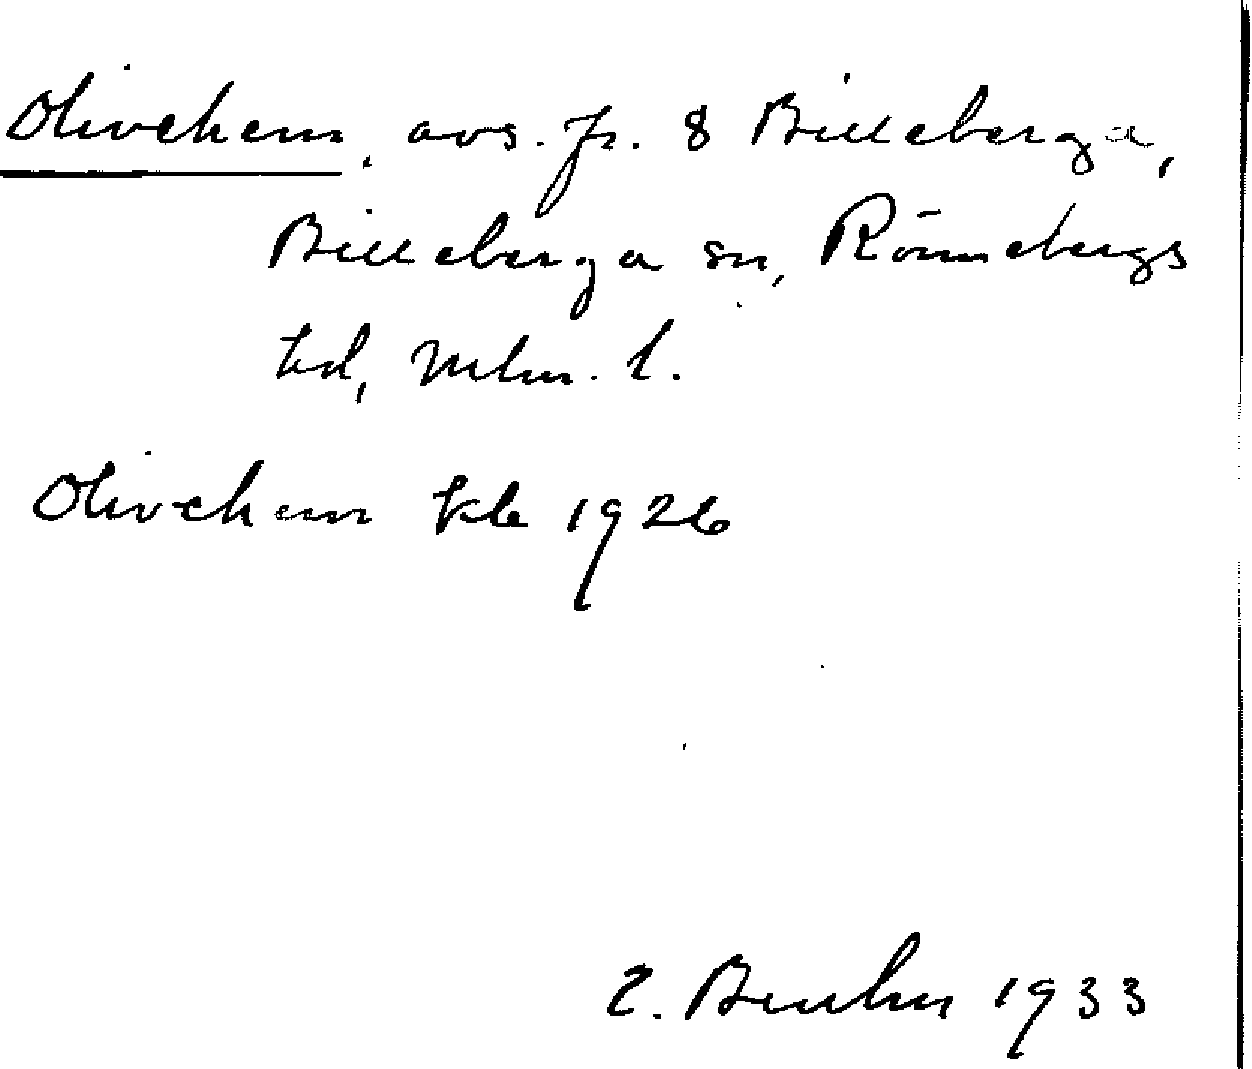 Olivehem, avs. fr. 8 Billeberga,
Billeberga sn, Rönnebergs
hd, Mlm. l.
Olivehem kb 1926
1933